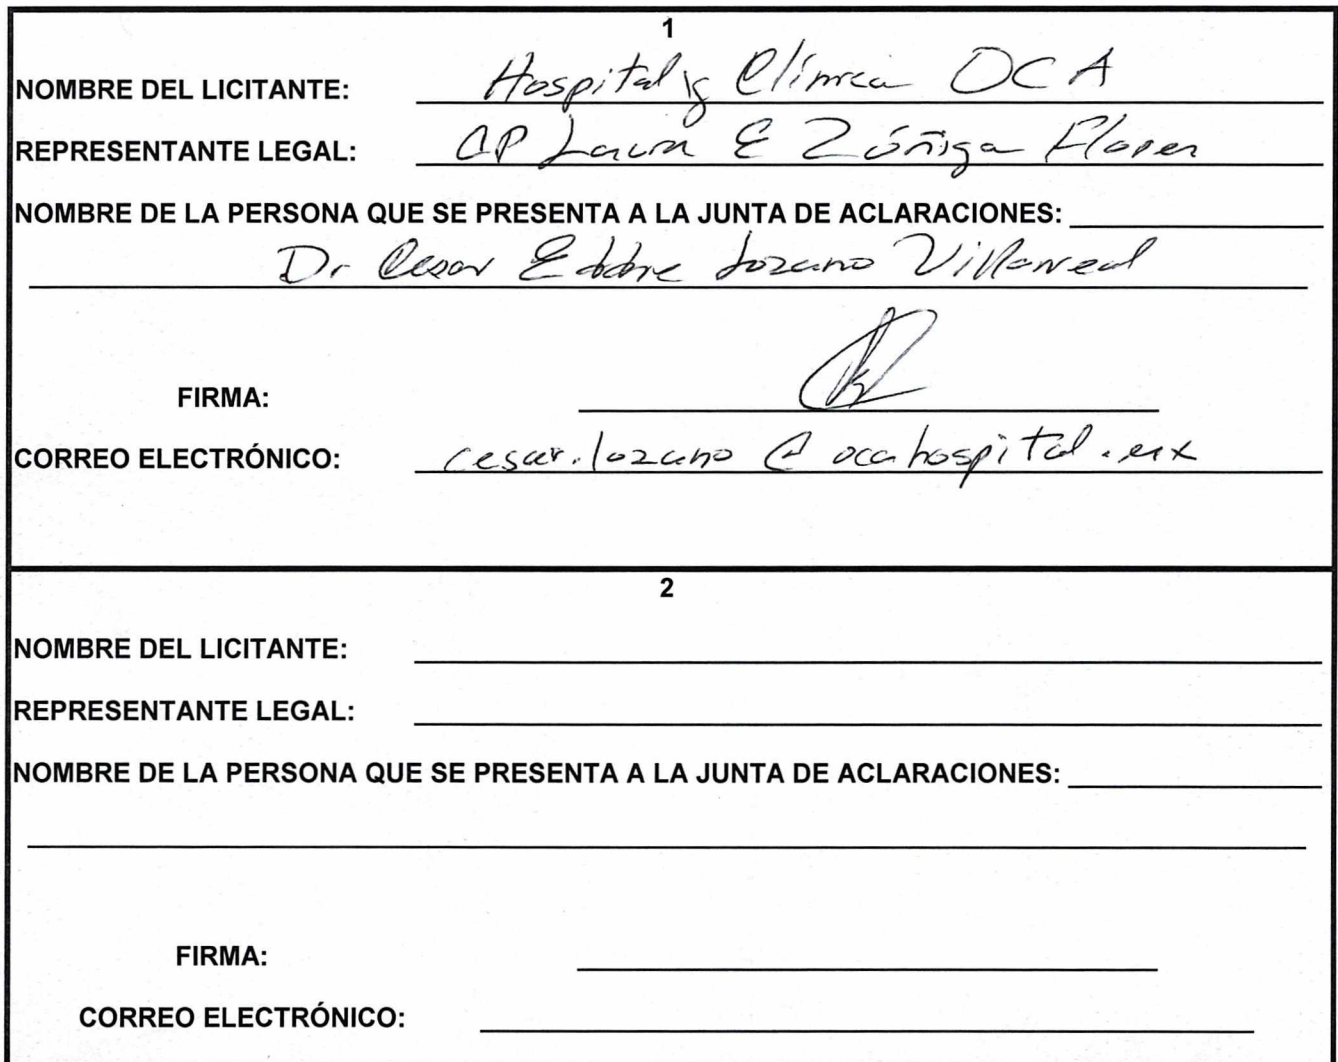 1
NOMBRE DEL LICITANTE: Hospital y Clínica OCA
REPRESENTANTE LEGAL: CP Laura E Zúñiga Flores
NOMBRE DE LA PERSONA QUE SE PRESENTA A LA JUNTA DE ACLARACIONES:
Dr Cesar Lozano Villarreal
FIRMA:
CORREO ELECTRÓNICO: cesar.lozano@ocahospital.mx
2
NOMBRE DEL LICITANTE:
REPRESENTANTE LEGAL:
NOMBRE DE LA PERSONA QUE SE PRESENTA A LA JUNTA DE ACLARACIONES:
FIRMA:
CORREO ELECTRÓNICO: